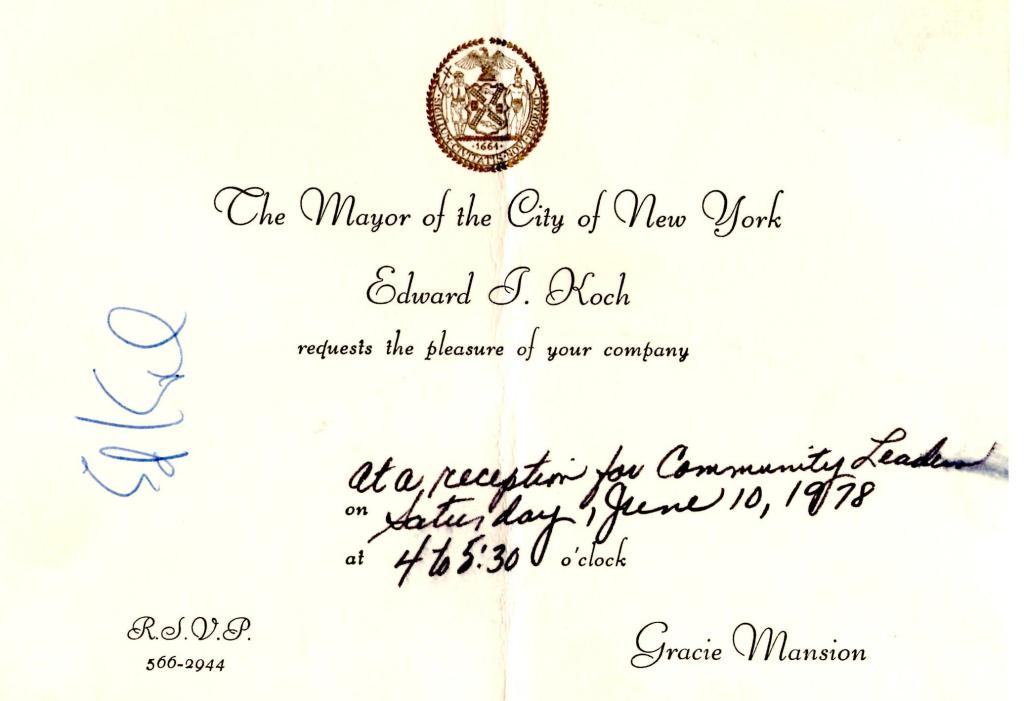 SIGILLUM CIVITATIS NOVI EBORACI
1664
The Mayor of the City of New York
Edward I. Koch
requests the pleasure of your company
Ed Koch
at a reception for Community Leaders
on Saturday, June 10, 1978
at 4 to 5:30 o'clock
R.S.V.P.
566-2944
Gracie Mansion